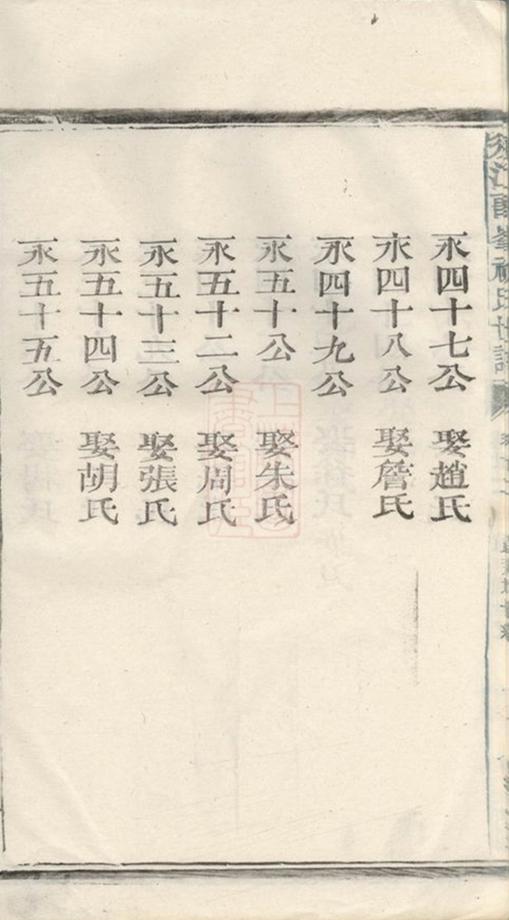 永四十七公　娶趙氏
永四十八公　娶詹氏
永四十九公
永五十公　娶朱氏
永五十二公　娶周氏
永五十三公　娶張氏
永五十四公　娶胡氏
永五十五公